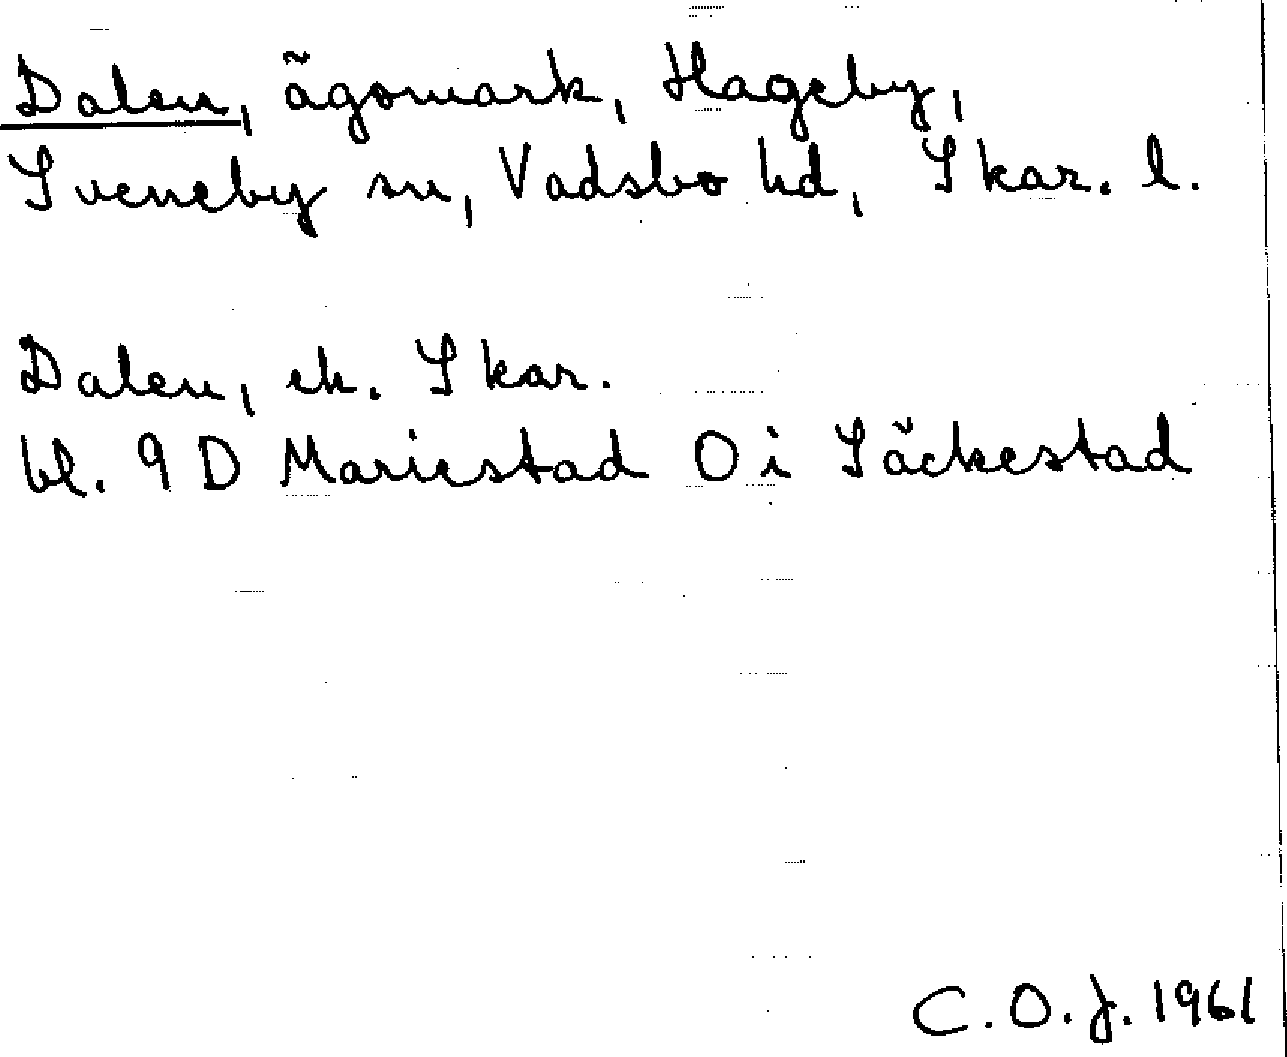 Dalen, ägomark, Hageby,
Sveneby sn, Vadsbo hd, Skar. l.
Dalen, ek. Skar.
bl. 9 D Mariestad O i Säckestad
C.O.J. 1961